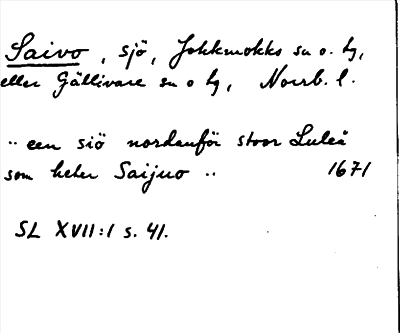 Saivo, sjö, Jokkmokks sn o. hg,
eller Gällivare sn o hg, Norrb. l.
.. een siö nordanför stoor Luleå
som heter Saijuo .. 1671
SL XVII:1 s. 41.